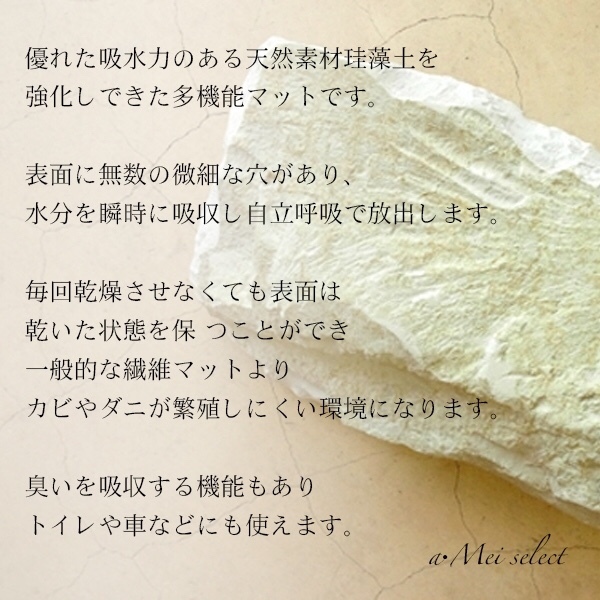 優れた吸水力のある天然素材珪藻土を
強化しできた多機能マットです。
表面に無数の微細な穴があり、
水分を瞬時に吸収し自立呼吸で放出します。
毎回乾燥させなくても表面は
乾いた状態を保 つことができ
一般的な繊維マットより
カビやダニが繁殖しにくい環境になります。
臭いを吸収する機能もあり
トイレや車などにも使えます。
a•Mei select